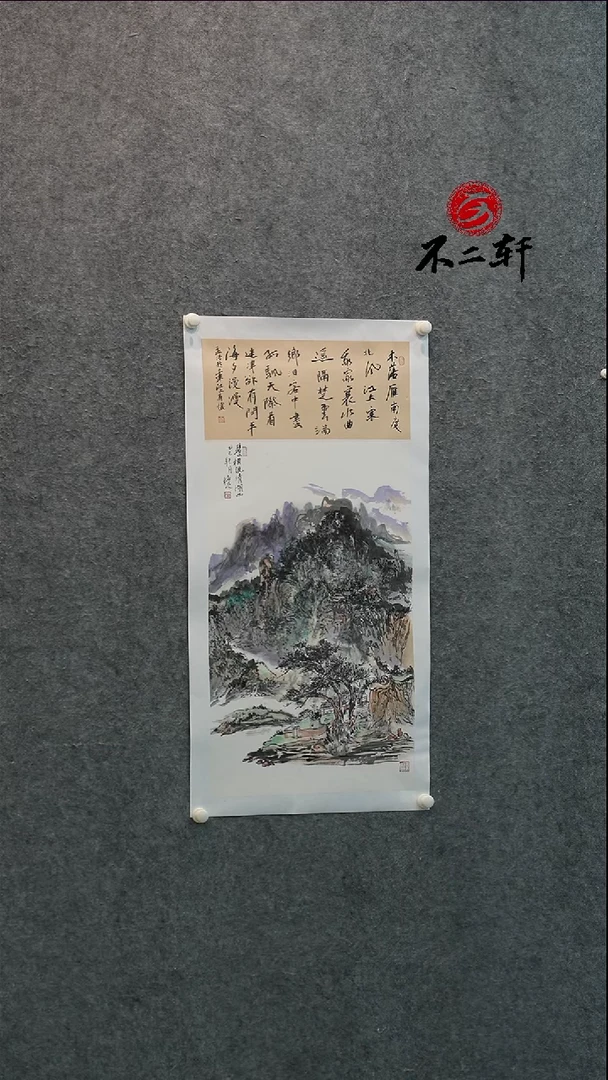 不二轩
木落雁南度
北风江上寒
我家襄水曲
遥隔楚雲端
鄉淚客中盡
孤帆天際看
迷津欲有問平
海夕漫漫